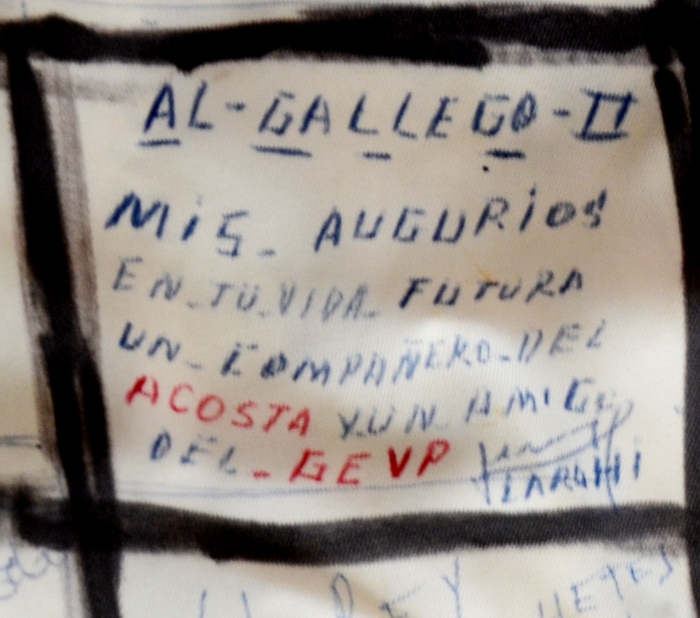 AL-GALLEGO-II
MiS- AUGURiOS
EN-TU-VIDA- FUTURA
UN- COMPAÑERO-DEL
ACOSTA Y-UN AMIGO
DEL- GEVP
REY